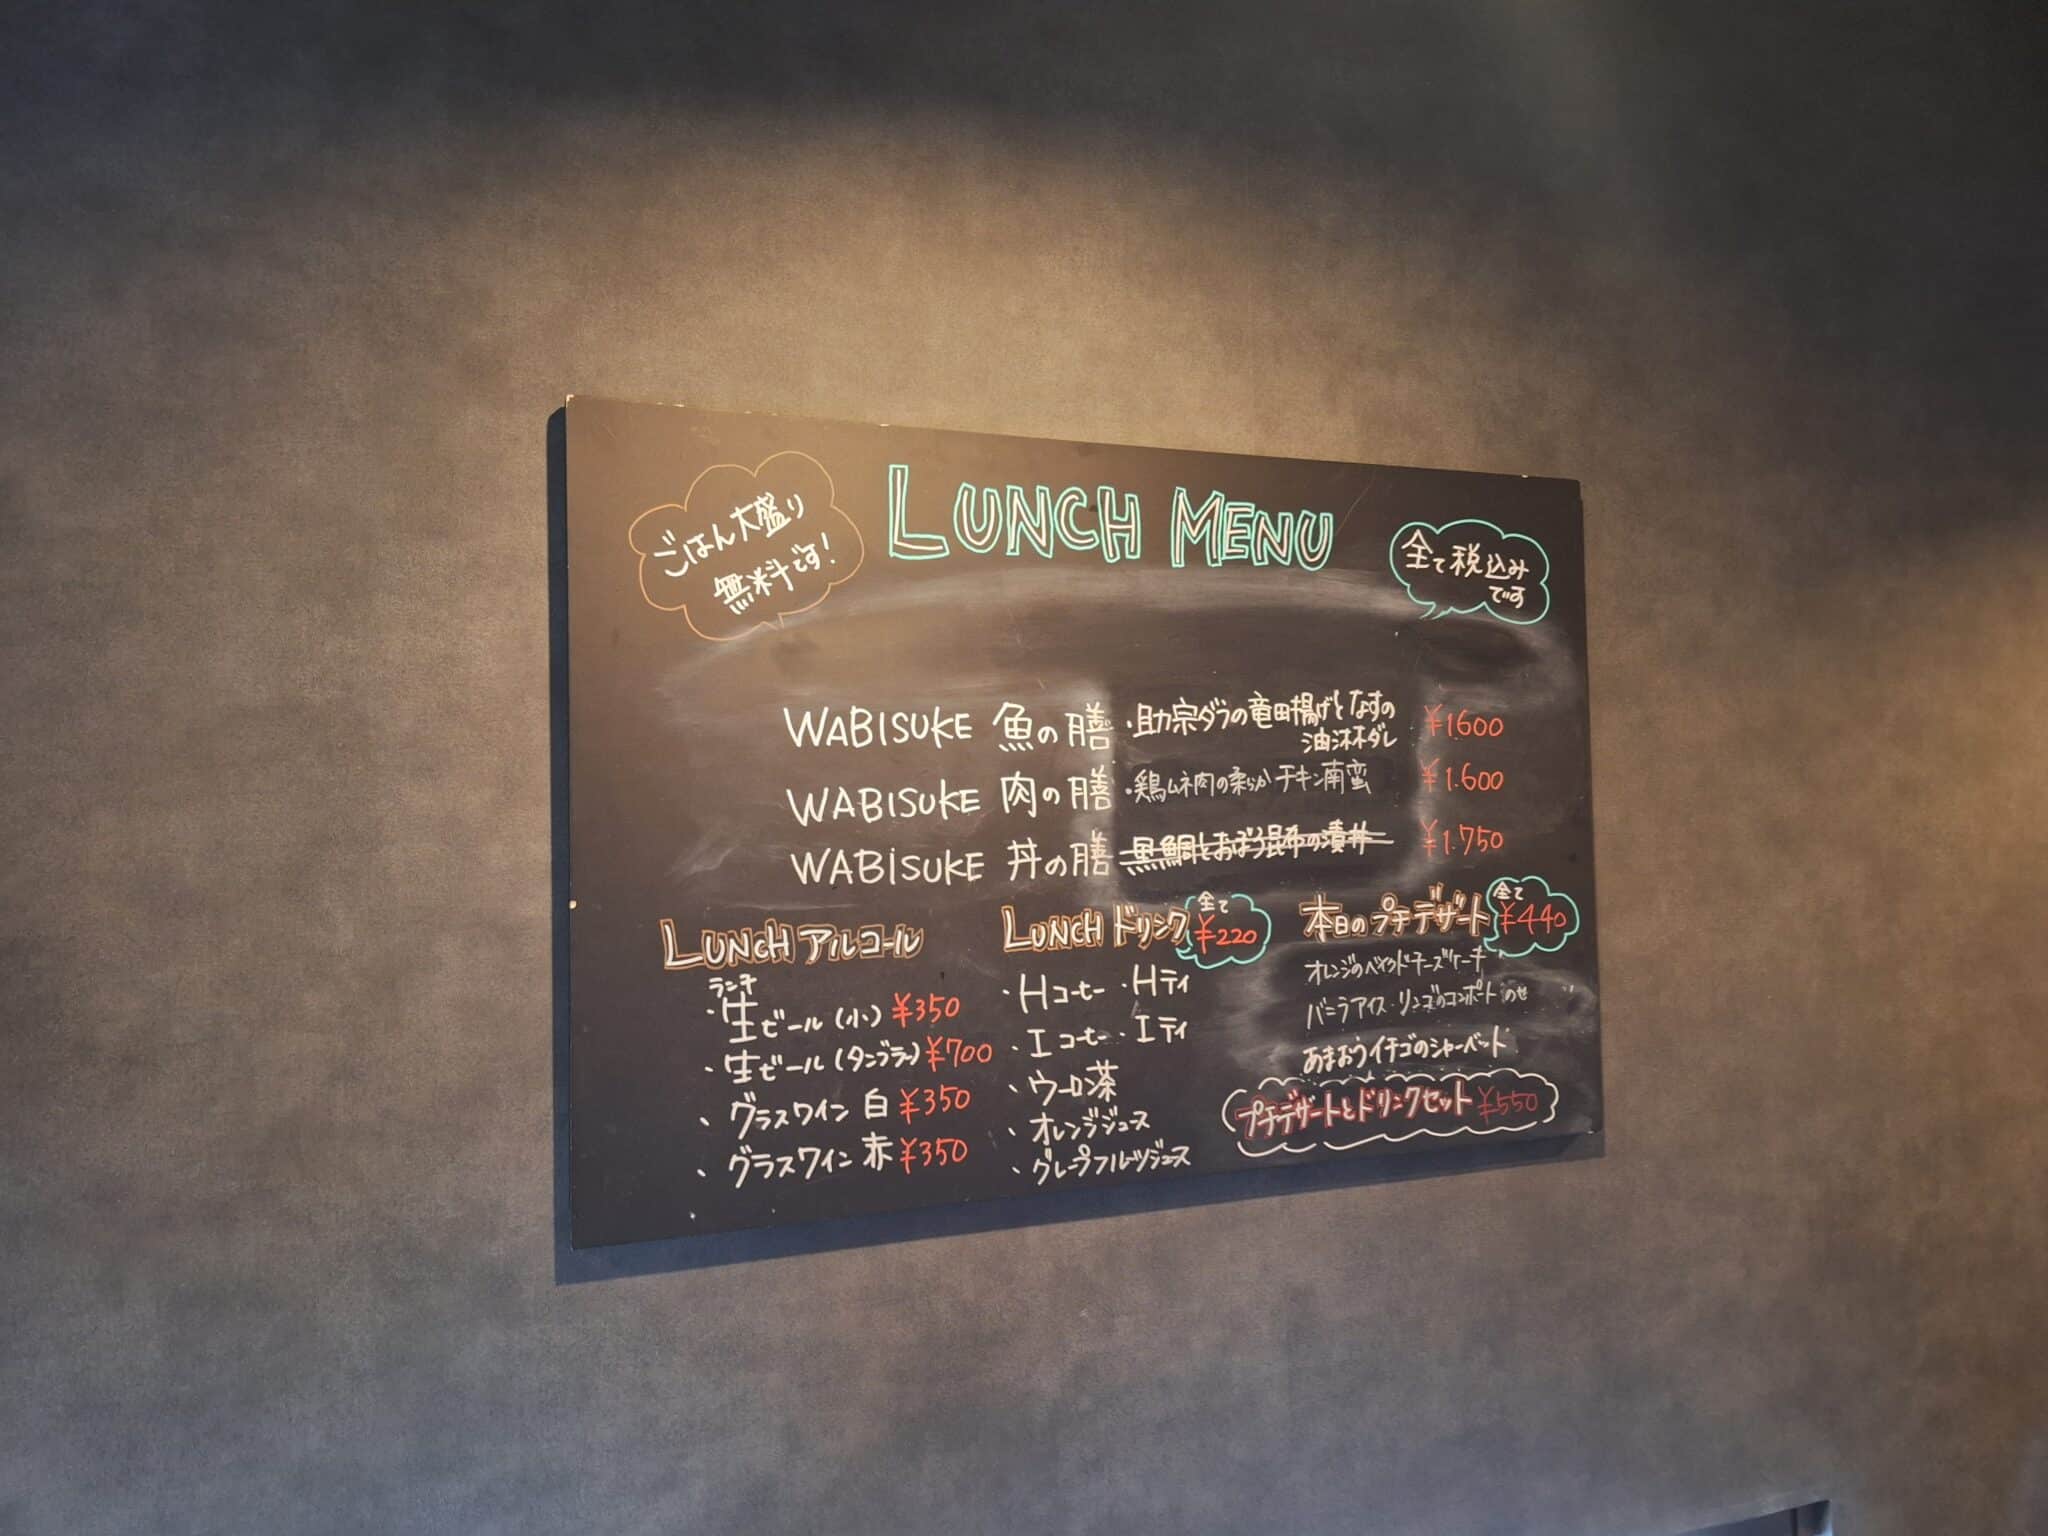 ごはん大盛り
無料です!
LUNCH MENU
全て税込み
です
WABISUKE 魚の膳 ・助宗ダラの竜田揚げとなすの ¥1600
油淋ダレ
WABISUKE 肉の膳 ・鶏ムネ肉の柔らか チキン南蛮 ¥1.600
WABISUKE 丼の膳 黒鯛とおぼろ昆布の漬丼 ¥1.750
LUNCH アルコール
ランチ
・生ビール(小) ¥350
・生ビール(タンブラー) ¥700
、グラスワイン 白 ¥350
、グラスワイン 赤 ¥350
LUNCH ドリンク 全て
¥220
・Hコーヒー ・Hティ
・Iコーヒー ・Iティ
、ウーロン茶
、オレンジジュース
、グレープフルーツジュース
本日のプチデザート 全て
¥440
オレンジのベイクドチーズケーキ
バニラアイス・リンゴのコンポートのせ
あまおうイチゴのシャーベット
プチデザートとドリンクセット ¥550